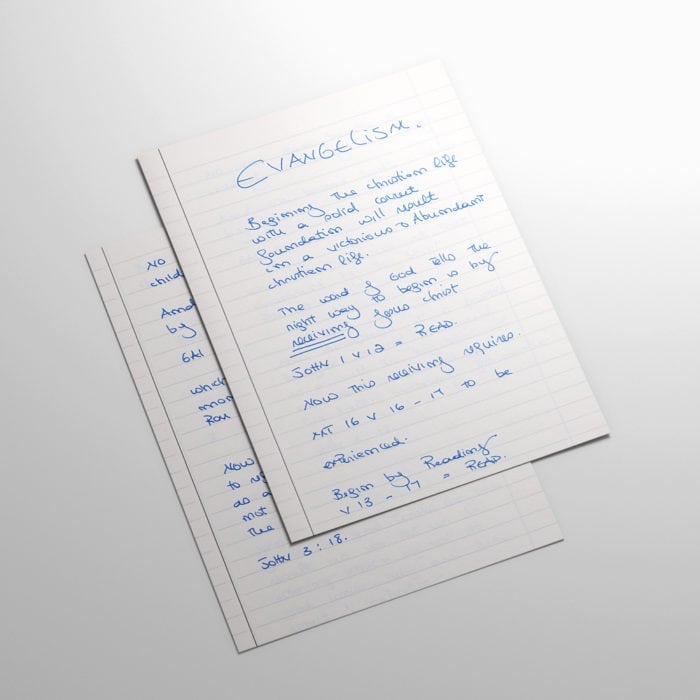 EVANGELISM.
Beginning the christian life
with a solid correct
foundation will result
in a victorious & Abundant
christian life.
The word of God tells the
right way to begin is by
receiving Jesus Christ
JOHN 1 V 12 = READ.
Now this receiving requires.
MT 16 V 16 - 17 to be
experienced.
Begin by Reading
V 13 - 17 = READ.
NO
child
by
GAl
which
Now
to
as a
not
the
JOHN 3 : 18.